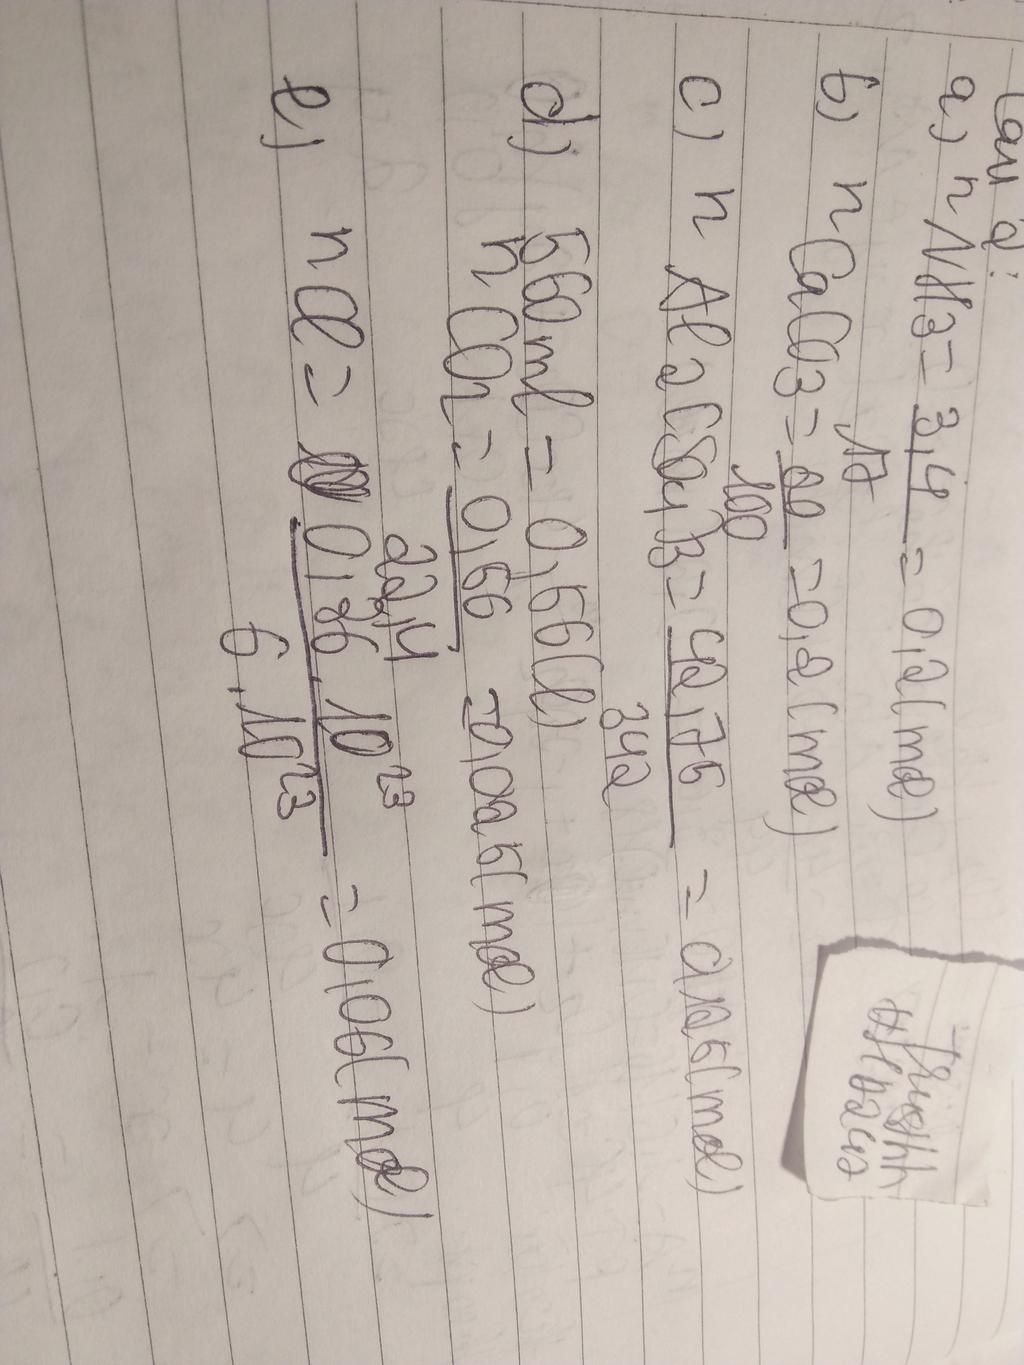 Câu 2:
a) nNH3 = 3,4 / 17 = 0,2 (mol)
b) nCaCO3 = 20 / 100 = 0,2 (mol)
c) nAl2(SO4)3 = 42,75 / 342 = 0,125 (mol)
d) 560ml = 0,56 (l)
nCO2 = 0,56 / 22,4 = 0,025 (mol)
e) nCl = 0,36.10²³ / 6.10²³ = 0,06 (mol)